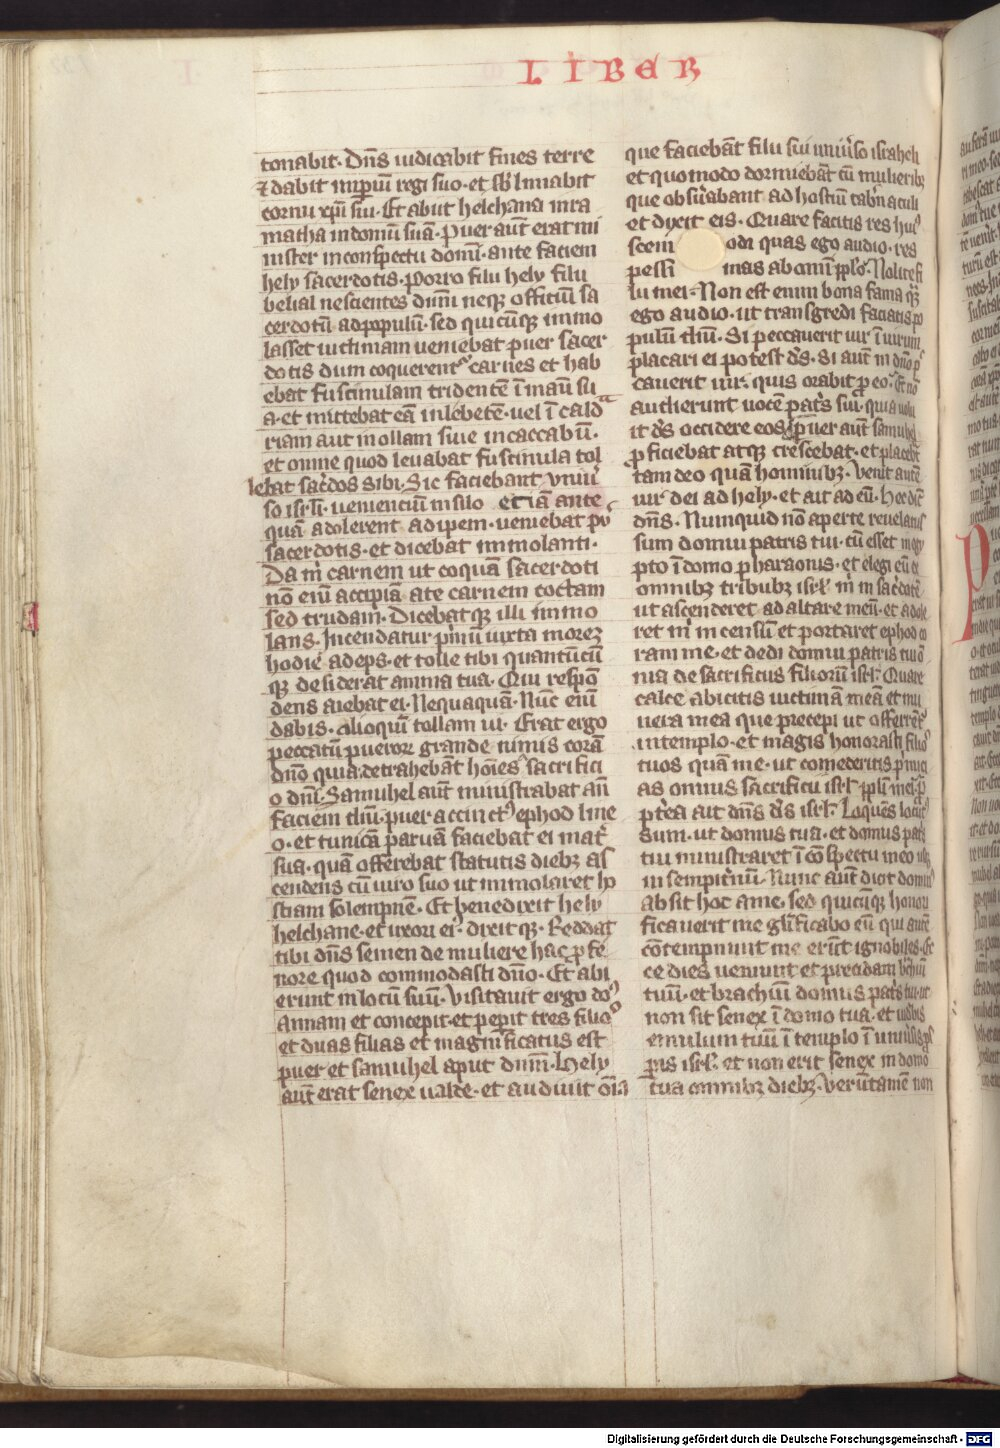 LIBER
tonabit. Dn̄s iudicabit fines terre
⁊ dabit inꝑiuȝ regi suo. et sb̓limabit
cornu xp̄i sui. Et abiit helchana in ra
matha in domū suā. Puer aūt erat mi
nister in conspectu domī. ante faciem
hely sacerdotis. Porro filii hely filii
belial nescientes dn̄m neqꝫ officiū sa
cerdotū ad populū. sed quicūqꝫ immo
lasset uictimam ueniebat puer sacer
dotis dum coquerent᷒ carnes et hab
ebat fuscinulam tridentē ī manu su
a. et mittebat eā in lebetē. uel ī calda
riam aut in ollam siue in caccabū.
et omne quod leuabat fuscinula tol
lebat sac̓dos sibi. Sic faciebant uniu̓
so isrl̓i. uenienciū in silo et iā ante
quā adolerent adipem. ueniebat pu̓
sacerdotis. et dicebat immolanti.
Da m̓ carnem ut coquā sacerdoti
nō enī accipiā a te carnem coctam
sed crudam. Dicebatqꝫ illi immo
lans. Incendatur p̓mū iuxta moreȝ
hodie adeps. et tolle tibi quantūcū
qꝫ desiderat anima tua. Qui respō
dens aiebat ei. Nequaquā. Nūc enī
dabis. alioquī tollam ui. Erat ergo
peccatū pueror̄ grande nimis corā
dn̄o quia detrahebāt hōies sacrifici
o dn̄i. Samuhel aūt ministrabat an̄
faciem dn̄i. puer accinct᷒ ephod line
o. et tunicā paruam faciebat ei mat̓
sua. quā offerebat statutis diebꝫ as
cendens cū uiro suo ut immolaret ho
stiam solempnē. Et benedixit hely
helchane. et uxori ei᷒. dixitqꝫ. Reddat
tibi dn̄s semen de muliere hac pro fe
nore quod commodasti dn̄o. Et abi
erunt in locū suū. Visitauit ergo do᷒
annam et concepit. et peperit tres filio᷒
et duas filias et magnificatus est
puer et samuhel aput dn̄m. Hely
aūt erat senex ualde. et audiuit oīa
que faciebāt filii sui uniu̓so israheli
et quomodo dormiebāt cū mulieribꝫ
que obs̓uabant ad hostiū tab̓naculi
et dixit eis. Quare facitis res hui᷒
scem odi quas ego audio. res
pessi mas ab omī pplo̅. Nolite fi
lii mei. Non est enim bona fama qā
ego audio. ut transgredi faciatis po
pulū dn̄i. Si peccauerit uir ī uirum
placari ei potest ds̄. Si aūt in dn̄o pec
cauerit uir. quis orabit ꝓ eo. Et nō
audierunt uocē pat̓s sui. quia uolu
it ds̄ occidere eos. Puer aūt samuhel
proficiebat atqꝫ crescebat. et placebat
tam deo quā hominibꝫ. Venit autē
uir dei ad hely. et ait ad eū. Hec dic̄
dn̄s. Numquid nō aperte reuelatus
sum domui patris tui. cū esset in egy
pto ī domo pharaonis. et elegi eū ex
omnibꝫ tribubꝫ isrl̓. m̓ in sac̓dotē.
ut ascenderet ad altare meū. et adole
ret m̓ incensū et portaret ephod co
ram me. et dedi domui patris tui ō
nia de sacrificiis filiorū isrl̓. Quare
calce abicitis uictimā meā et mu
nera mea que precepi ut offerrent᷒
in templo. et magis honorasti filio᷒
tuos quā me. ut comederitis p̓mici
as omnis sacrificii isrl̓. ppl̅i mei. Pro
pt̓ea ait dn̄s ds̄ isrl̓. Loquēs locut᷒
sum. ut domus tua. et domus pat̓s
tui ministraret ī cōspectu meo usqꝫ
in sempit̓nū. Nunc aūt dicit domin᷒
absit hoc a me. sed quicūqꝫ honori
ficauerit me gl̓ificabo eū. qui autē
cōtempnunt me erūt ignobiles. Ec
ce dies ueniunt et precidam b̓chium
tuū. et brachiū domus pat̓s tui. ut
non sit senex ī domo tua. et uidebis
emulum tuū ī templo ī uniu̓sis ꝓs
peris isrl̓. et non erit senex in domo
tua omnibꝫ diebꝫ. Verūtamē non
Digitalisierung gefördert durch die Deutsche Forschungsgemeinschaft - DFG